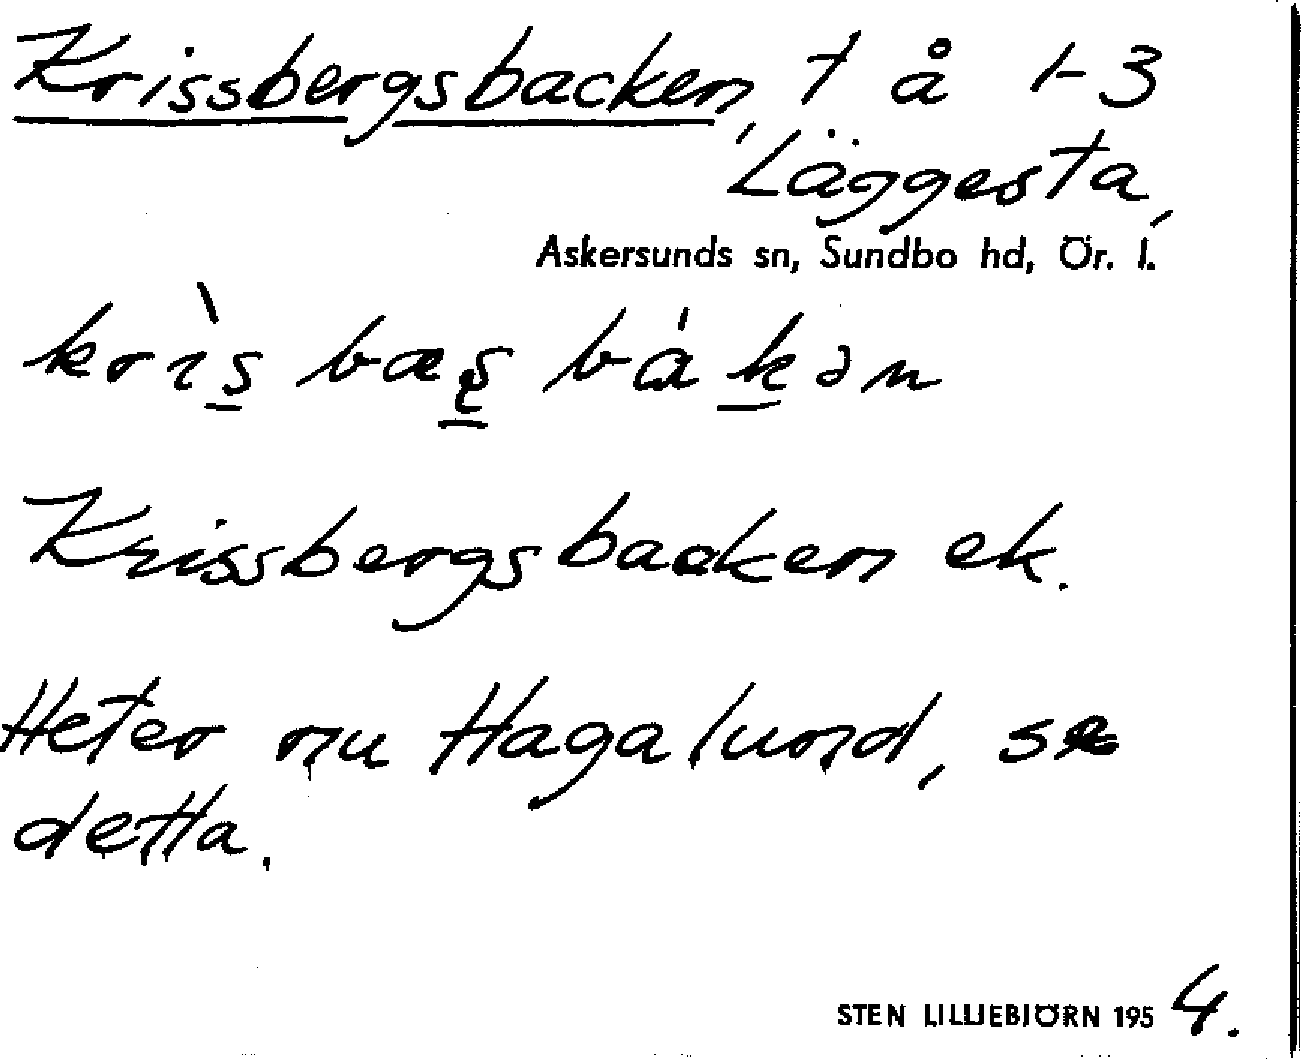 Krissbergsbacken, t å 1-3
Läggesta,
Askersunds sn, Sundbo hd, Ör. l.
krìs bæʂ bákən
Krissbergsbacken ek.
Heter nu Hagalund, se
detta.
STEN LILLIEBJÖRN 1954.